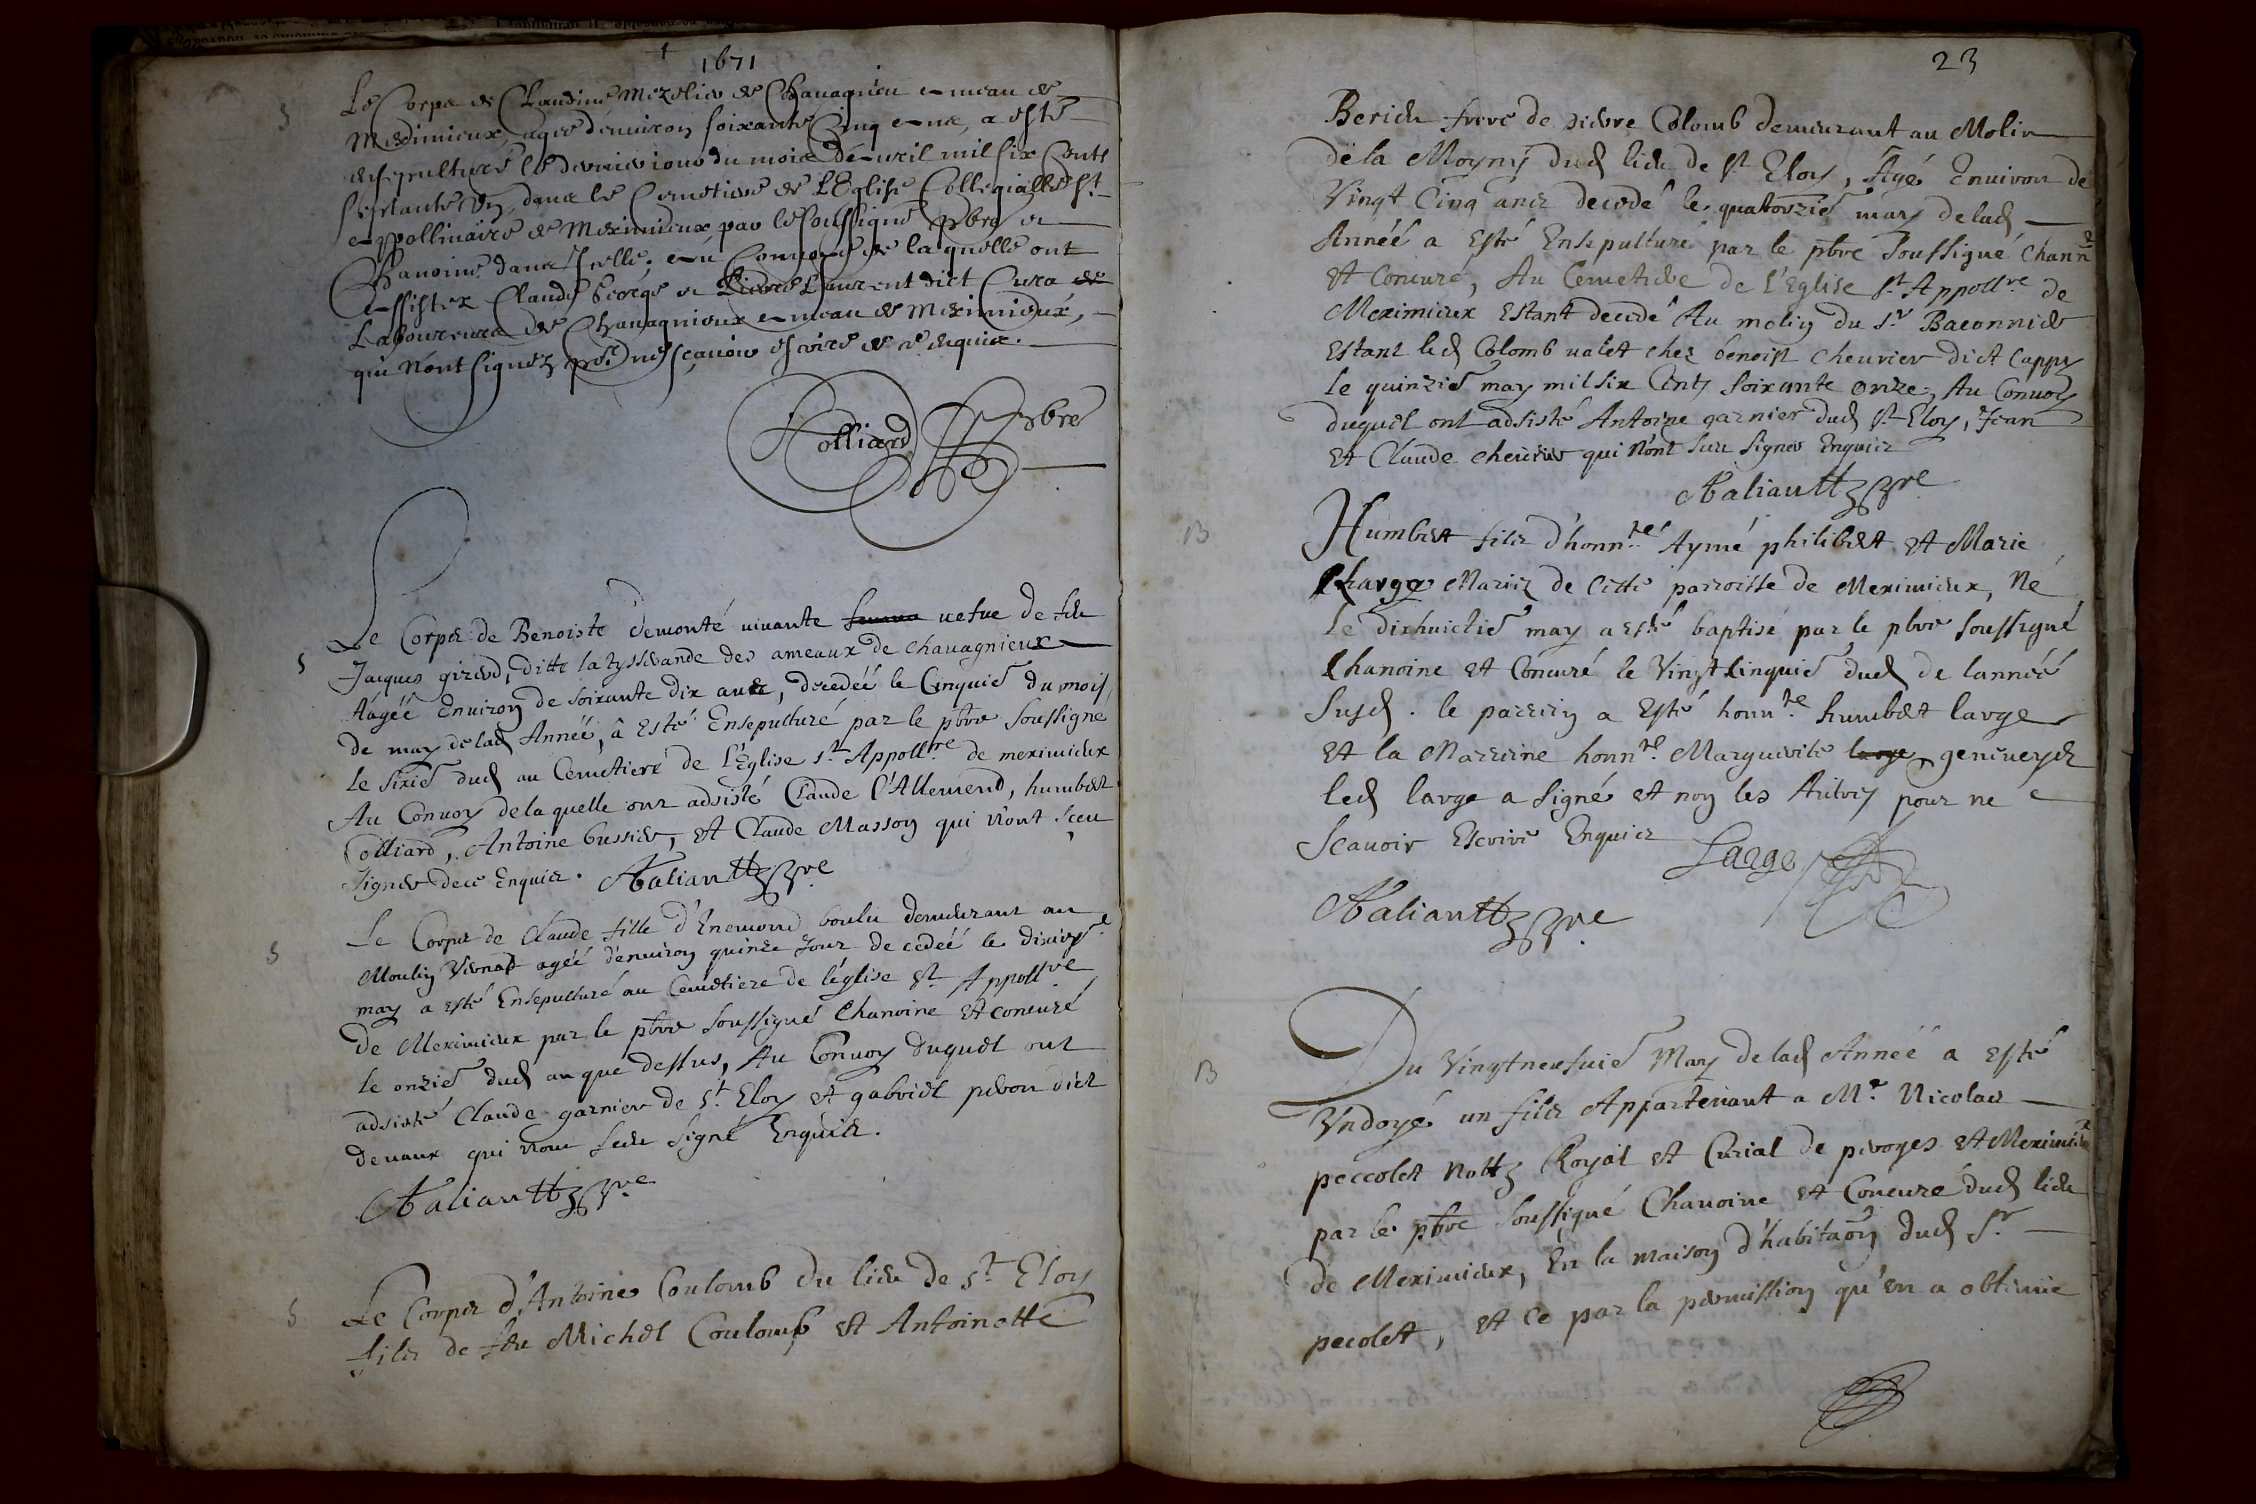 1671
Le Corps de Claudine Mezelier de Chavagnieu ameau de
Meximieux, agee d'environ soixante Cinq ans, a esté
ensepulturé le dernier jour du mois d'avril mil six Cents
septante un, dans le Cemetiere de L'Eglise Collegialle St
appollinaire de Meximieux par le soussigné pbre et
Chanoine dans icelle, au Convoy de laquelle ont
assistez Claude George et Pierre Laurent dict Cura
Laboureurs de Chavagnieux ameau de Meximieux,
qui n'ont signez pour ne sçavoir escrire de ce enquis.
Colliard pbre
S
Le Corps de Benoiste demonté vivante femme vefve de feu
Jacques girend, ditte la tysserande des ameaux de chavagnieux
Aagéé Environ de soixante dix ans, decedéé le Cinquie du mois
de may de lad Annéé, a Esté Ensepulturé par le pbre soussigné
le sixie dud au Cemetiere de L'Eglise St Appollre de meximieux
Au Convoy de laquelle ont adsisté Claude L'Allemend, humbert
Colliard, Antoine bussier, et Claude Masson qui n'ont sçeu
signer dece Enquis. pbre
S
Le Corps de Claude fille d'Enemond boulu demeurant au
Moulin agéé d'environ quinze jour decedéé le dixie
may a esté Ensepulturé au Cemetiere de léglise St Appollre
de Meximieux par le pbre soussigné Chanoine et concuré
le onzie dud an que dessus, Au Convoy duquel ont
adsisté Claude garnier de St Eloy et gabriel peron dict
devaux qui n'ont sceu signé Enquis.
pbre
S
Le Corps d'Antoine Coulomb du lieu de St Eloy
fils de feu Michel Coulomb et Antoinette
23
frere de pierre Colomb demeurant au Molin
de la dud lieu de St Eloy, Agé Environ de
Vingt Cinq ans decedé le quatorzie may de lad
Annéé a Esté Ensepulturé par le pbre soussigné channe
et Concuré, Au Cemetiere de L'Eglise St Appollre de
Meximieux Estant decedé Au molin du Sr Baconnier
Estant led Colomb valet chez benoist chevrier dict Cappy
le quinzie may mil six Cents soixante onze, Au Convoy
duquel ont adsisté Antoine garnier dud St Eloy, Jean
et Claude chevrier qui n'ont sceu signer Enquis
pbre
B
Humbert fils d'honnte Aymé philibert et Marie
Large Mariez de Cette parroisse de Meximieux, Né
Le dixhuictie may a esté baptisé par le pbre soussigné
Chanoine et Concuré le Vingtcinquie dud de lannéé
susd. le parrein a Esté honnte humbert large
et la Marreine honnte Marguerite large
led large a signé et non les Autres pour ne
Scavoir Escrire Enquis
Large
pbre
B
Du Vingtneufvie May de lad Annéé a Esté
Vndoyé un fils Appartenant a Mr Nicolas
peccolet Nottre Royal et Curial de peroges et Meximieux
par le pbre soussigné Chanoine et Concuré dud lieu
de Meximieux, En la maison d'habitaon dud Sr
pecolet, et ce par la permission qu'en a obtenüe